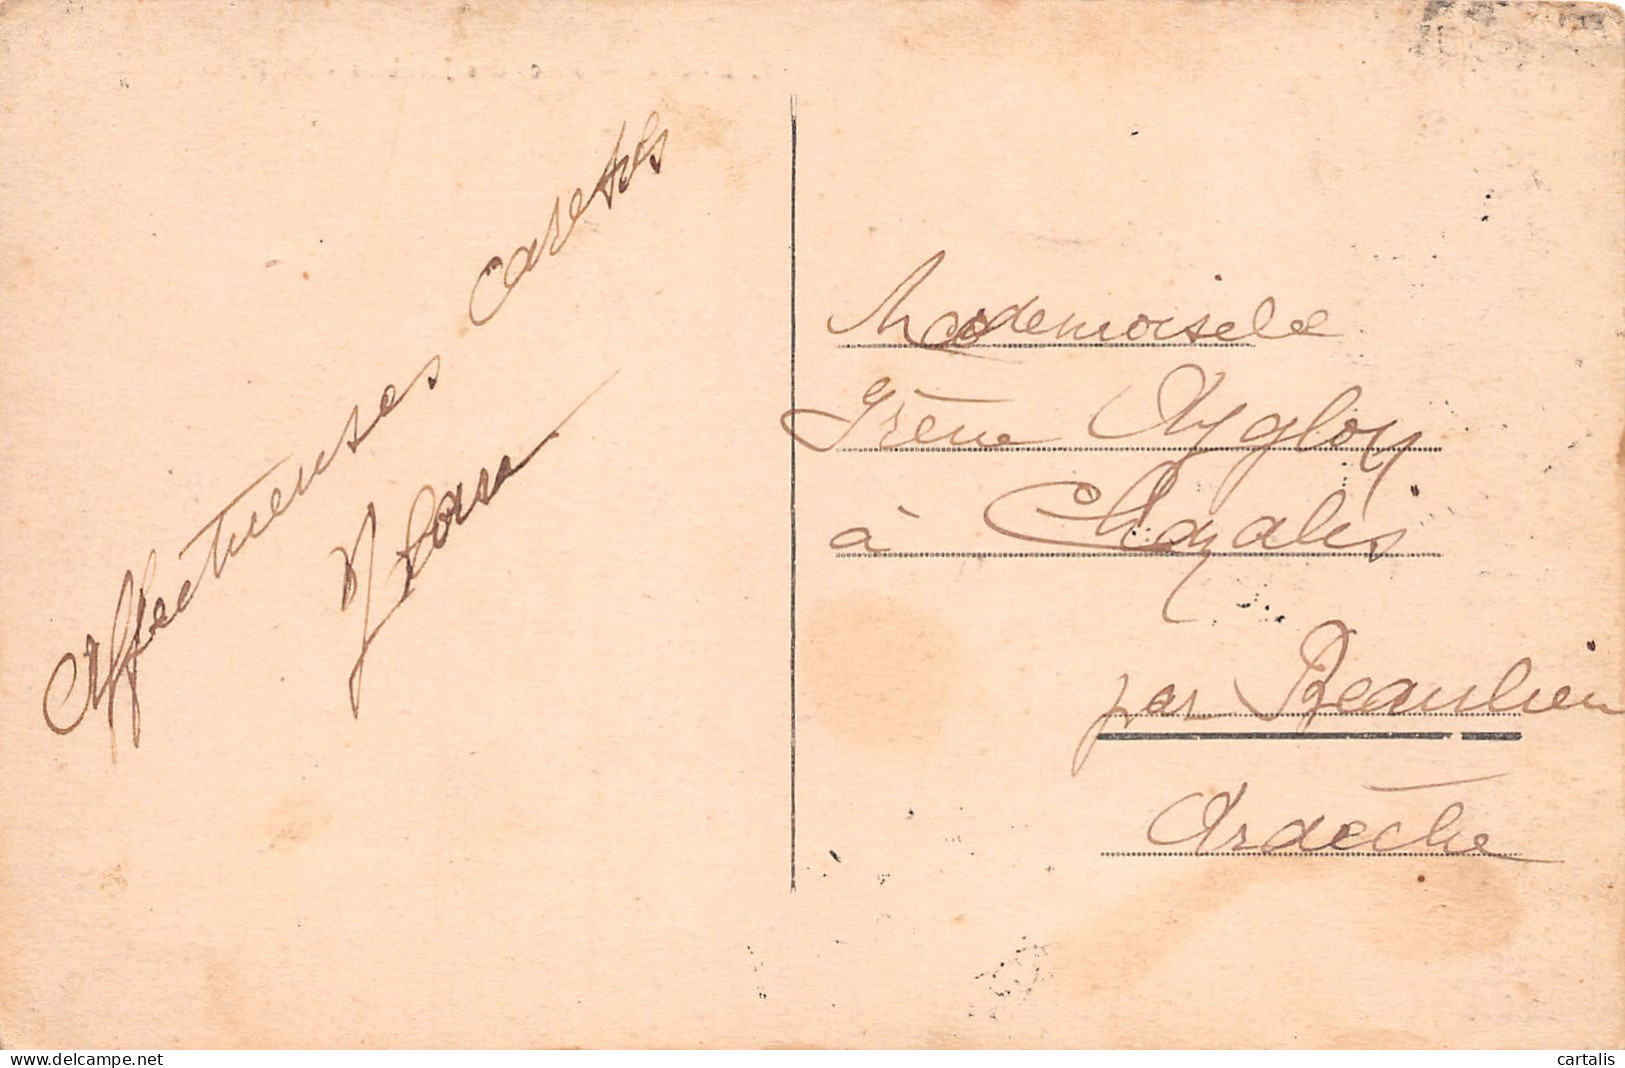 Affectueuses caresses
Mademoiselle
Irène Aygloy
à Chazalis
par Beaulieu
Ardèche
www.delcampe.net
cartalis